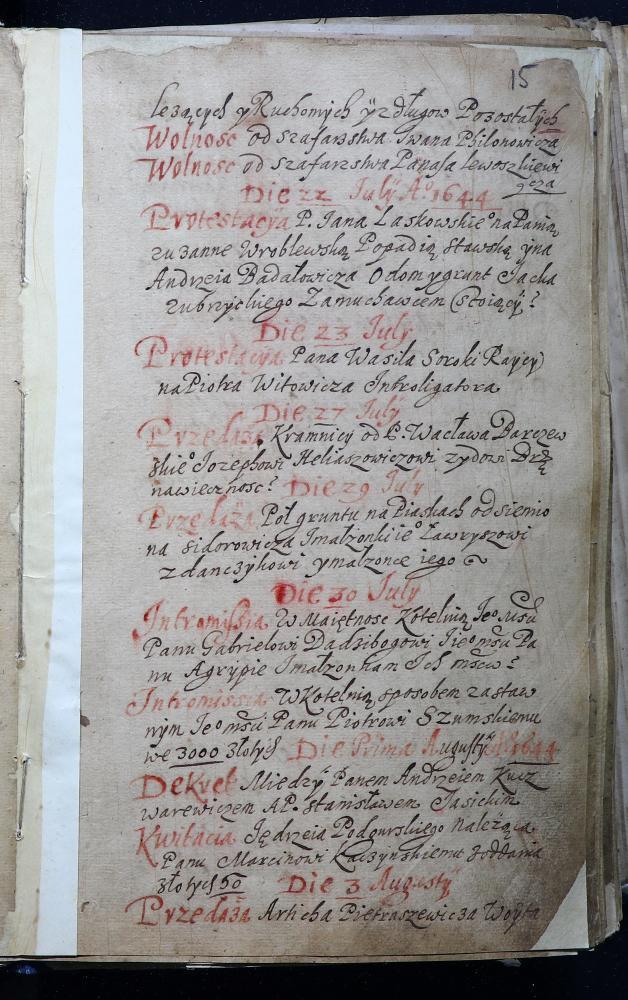 15
lezących y Ruchomych ÿ z długow Pozostałych
Wolnosc od szafarstwa Iwana Philonowicza
Wolnosc od szafarstwa Panasa Lewoszkiewi
cza
Die 22 Julÿ A° 1644
Protestacya P. Jana Laskowskie° na Panią
zuzanne Wroblewską Popadią stawską ÿ na
Andrzeia Badałowicza O dom y grunt Jacka
zubrzyckiego Zamuchawcem stoiącÿ
Die 23 Julÿ
Protestacya Pana Wasila Soroki Raycy
na Piotra Witowicza Introligatora
Die 27 Julÿ
Przedaża Kramnicy od P. Wacława Barczew
skie° Jozephowi Heliaszowiczowi zydowi
na wiecznosc Die 29 July
Przedaża Poł gruntu na Piaskach od siemio
na sidorowicza Imałzonki ie° Ławryszowi
zdanczykowi y małzonce iego
Die 30 July
Intromissia W Maiętnosc Kotelnią Je° Mśći
Panu Gabrielowi Dadzibogowi Jie° mśći Pa
nu Agrypie Imałzonkam Ich mściw
Intromissia W Kotelnią sposobem zastaw
nym Je° mśći Panu Piotrowi Szumskiemu
we 3000 złotych Die Prima Augustÿ A° 1644
Dekret Miedzÿ Panem Andrzeiem Kucz
warewiczem A P. Stanisławem Jasickim
Kwitacia Jędrzeia Podgurskiego należąca
Panu Marcinowi Kaczynskiemu z oddania
złotych 50 Die 3 Augustÿ
Przedaża Articha Pietraszewicza Woyta